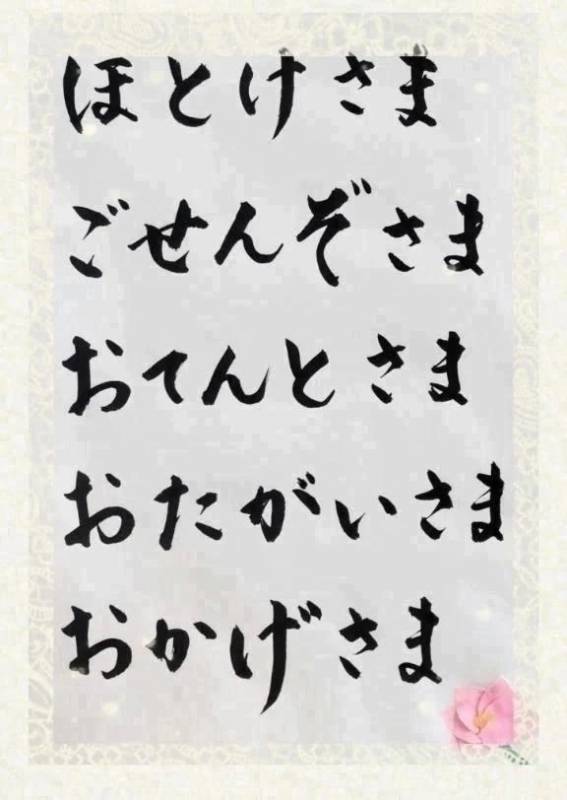 ほとけさま
ごせんぞさま
おてんとさま
おたがいさま
おかげさま